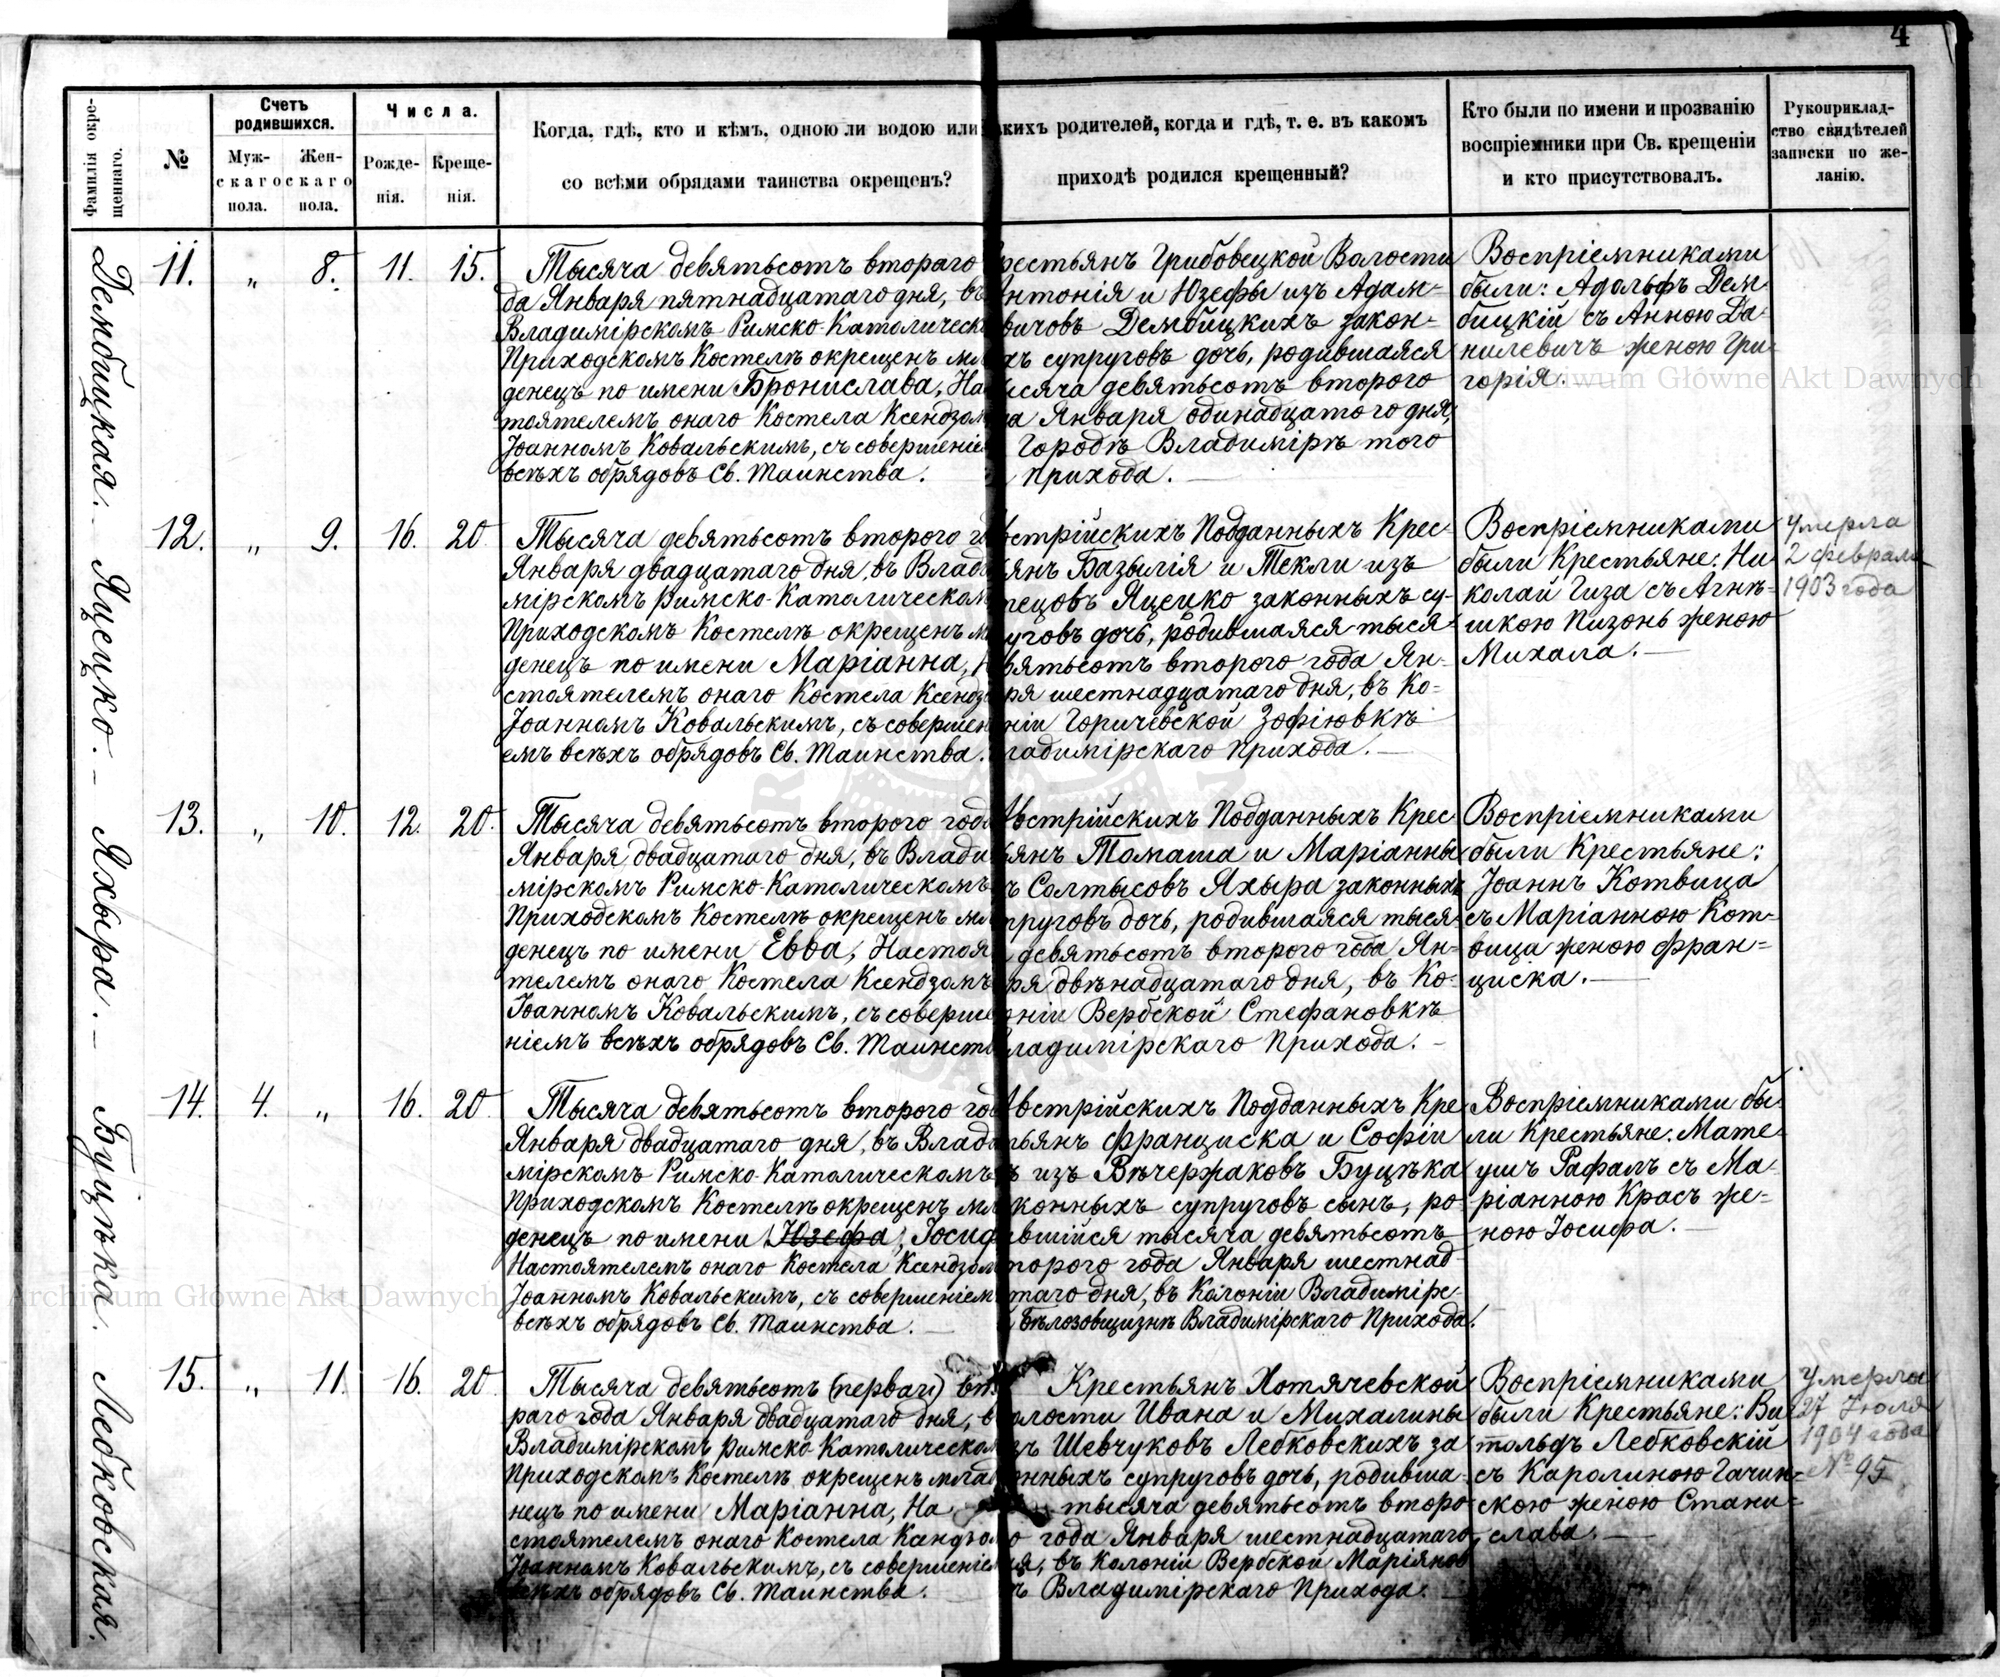 4
Фамилія окре-
щеннаго.
№
Счетъ
родившихся.
Муж-
скаго
пола.
Жен-
скаго
пола.
Числа.
Рожде-
нія.
Креще-
нія.
Когда, гдѣ, кто и кѣмъ, одною ли водою или
со всѣми обрядами таинства окрещенъ?
кихъ родителей, когда и гдѣ, т. е. въ какомъ
приходѣ родился крещенный?
Кто были по имени и прозванію
воспріемники при Св. крещеніи
и кто присутствовалъ.
Рукоприклад-
ство свидѣтелей
записки по же-
ланію.
Дембицкая.
11. „ 8. 11. 15.
Тысяча девятьсотъ втораго
да Января пятнадцатаго дня, въ
Владимірскомъ Римско-Католическ
Приходскомъ Костелѣ окрещенъ мла
денецъ по имени Бронислава, На
тоятелемъ онаго Костела Ксендзом
Іоанномъ Ковальскимъ, съ совершеніе
всѣхъ обрядовъ Св. Таинства.
рестьянъ Грибовецкой Волости
Антонія и Юзефы изъ Адам-
вичовъ Дембицкихъ закон-
хъ супруговъ дочь, родившаяся
ысяча девятьсотъ второго
да Января одинадцатого дня,
Городѣ Владимірѣ того
Прихода.
Воспріемниками
были: Адольфъ Дем
бицкій съ Анною Да-
нилевичъ женою Гри-
горія.
Яцейко.
12. „ 9. 16. 20.
Тысяча девятьсотъ второго го
Января двадцатаго дня, въ Влади
мірскомъ Римско-Католическом
Приходскомъ Костелѣ окрещенъ м
денецъ по имени Маріанна, Н
стоятелемъ онаго Костела Ксендзо
Іоанномъ Ковальскимъ, съ совершен
емъ всѣхъ обрядовъ Св. Таинства.
встрійскихъ Подданныхъ Крес-
ьянъ Базылія и Текли изъ
пецовъ Яцейко законныхъ су-
уговъ дочь, родившаяся тыся
вятьсотъ второго года Ян-
ря шестнадцатаго дня, въ Ко-
ніи Горичевской Зофіювкѣ
ладимірскаго Прихода.
Воспріемниками
были Крестьяне: Ни-
колай Гиза съ Агнѣ-
шкою Пизонь женою
Михала.
Умерла
2 февраля
1903 года
Яхыра.
13. „ 10. 12. 20.
Тысяча девятьсотъ второго года
Января двадцатаго дня, въ Влади
мірскомъ Римско-Католическомъ
Приходскомъ Костелѣ окрещенъ мла
денецъ по имени Евва, Настоя
телемъ онаго Костела Ксендзомъ
Іоанномъ Ковальскимъ, съ соверше
ніемъ всѣхъ обрядовъ Св. Таинств
Австрійскихъ Подданныхъ Крес
ьянъ Томаша и Маріанны
ъ Солтысовъ Яхыра законныхъ
пруговъ дочь, родившаяся тыся
девятьсотъ второго года Ян-
ря двѣнадцатаго дня, въ Ко-
ніи Вербской Стефановкѣ
ладимірскаго Прихода.
Воспріемниками
были Крестьяне:
Іоаннъ Котвица
съ Маріанною Кот-
вица женою Фран-
циска.
Буцѣка.
14. 4. „ 16. 20.
Тысяча девятьсотъ второго год
Января двадцатаго дня, въ Влади
мірскомъ Римско-Католическомъ
Приходскомъ Костелѣ окрещенъ мла
денецъ по имени Юзефа, Іосиф
Настоятелемъ онаго Костела Ксендзом
Іоанномъ Ковальскимъ, съ совершеніем
всѣхъ обрядовъ Св. Таинства.
Австрійскихъ Подданныхъ Кре
тьянъ Франциска и Софіи
ъ изъ Вѣчержаковъ Буцѣка
конныхъ супруговъ сынъ, ро
ившійся тысяча девятьсотъ
торого года Января шестнад-
таго дня, въ Колоніи Владимірс-
й Бѣлозовщизнѣ Владимірскаго Прихода.
Воспріемниками бы-
ли Крестьяне: Мате-
ушъ Рафалъ съ Ма-
ріанною Красъ же-
ною Іосифа.
Лебковская.
15. „ 11. 16. 20.
Тысяча девятьсотъ (перваг) вто
раго года Января двадцатаго дня, в
Владимірскомъ Римско-Католическом
Приходскомъ Костелѣ окрещенъ млад
нецъ по имени Маріанна, На
стоятелемъ онаго Костела Кандзом
Іоанномъ Ковальскимъ, съ совершеніем
всѣхъ обрядовъ Св. Таинства.
Крестьянъ Хотячевской
олости Ивана и Михалины
зъ Шевчуковъ Лебковскихъ за
онныхъ супруговъ дочь, родивша-
тысяча девятьсотъ второ-
о года Января шестнадцатаго
я, въ Колоніи Вербской Маріянов
ъ Владимірскаго Прихода.
Воспріемниками
были Крестьяне: Ви
тольдъ Лебковскій
съ Каролиною Гачин-
скою женою Стани-
слава.
Умерла
27 Іюля
1904 года
№ 95
Archiwum Główne Akt Dawnych
Archiwum Główne Akt Dawnych